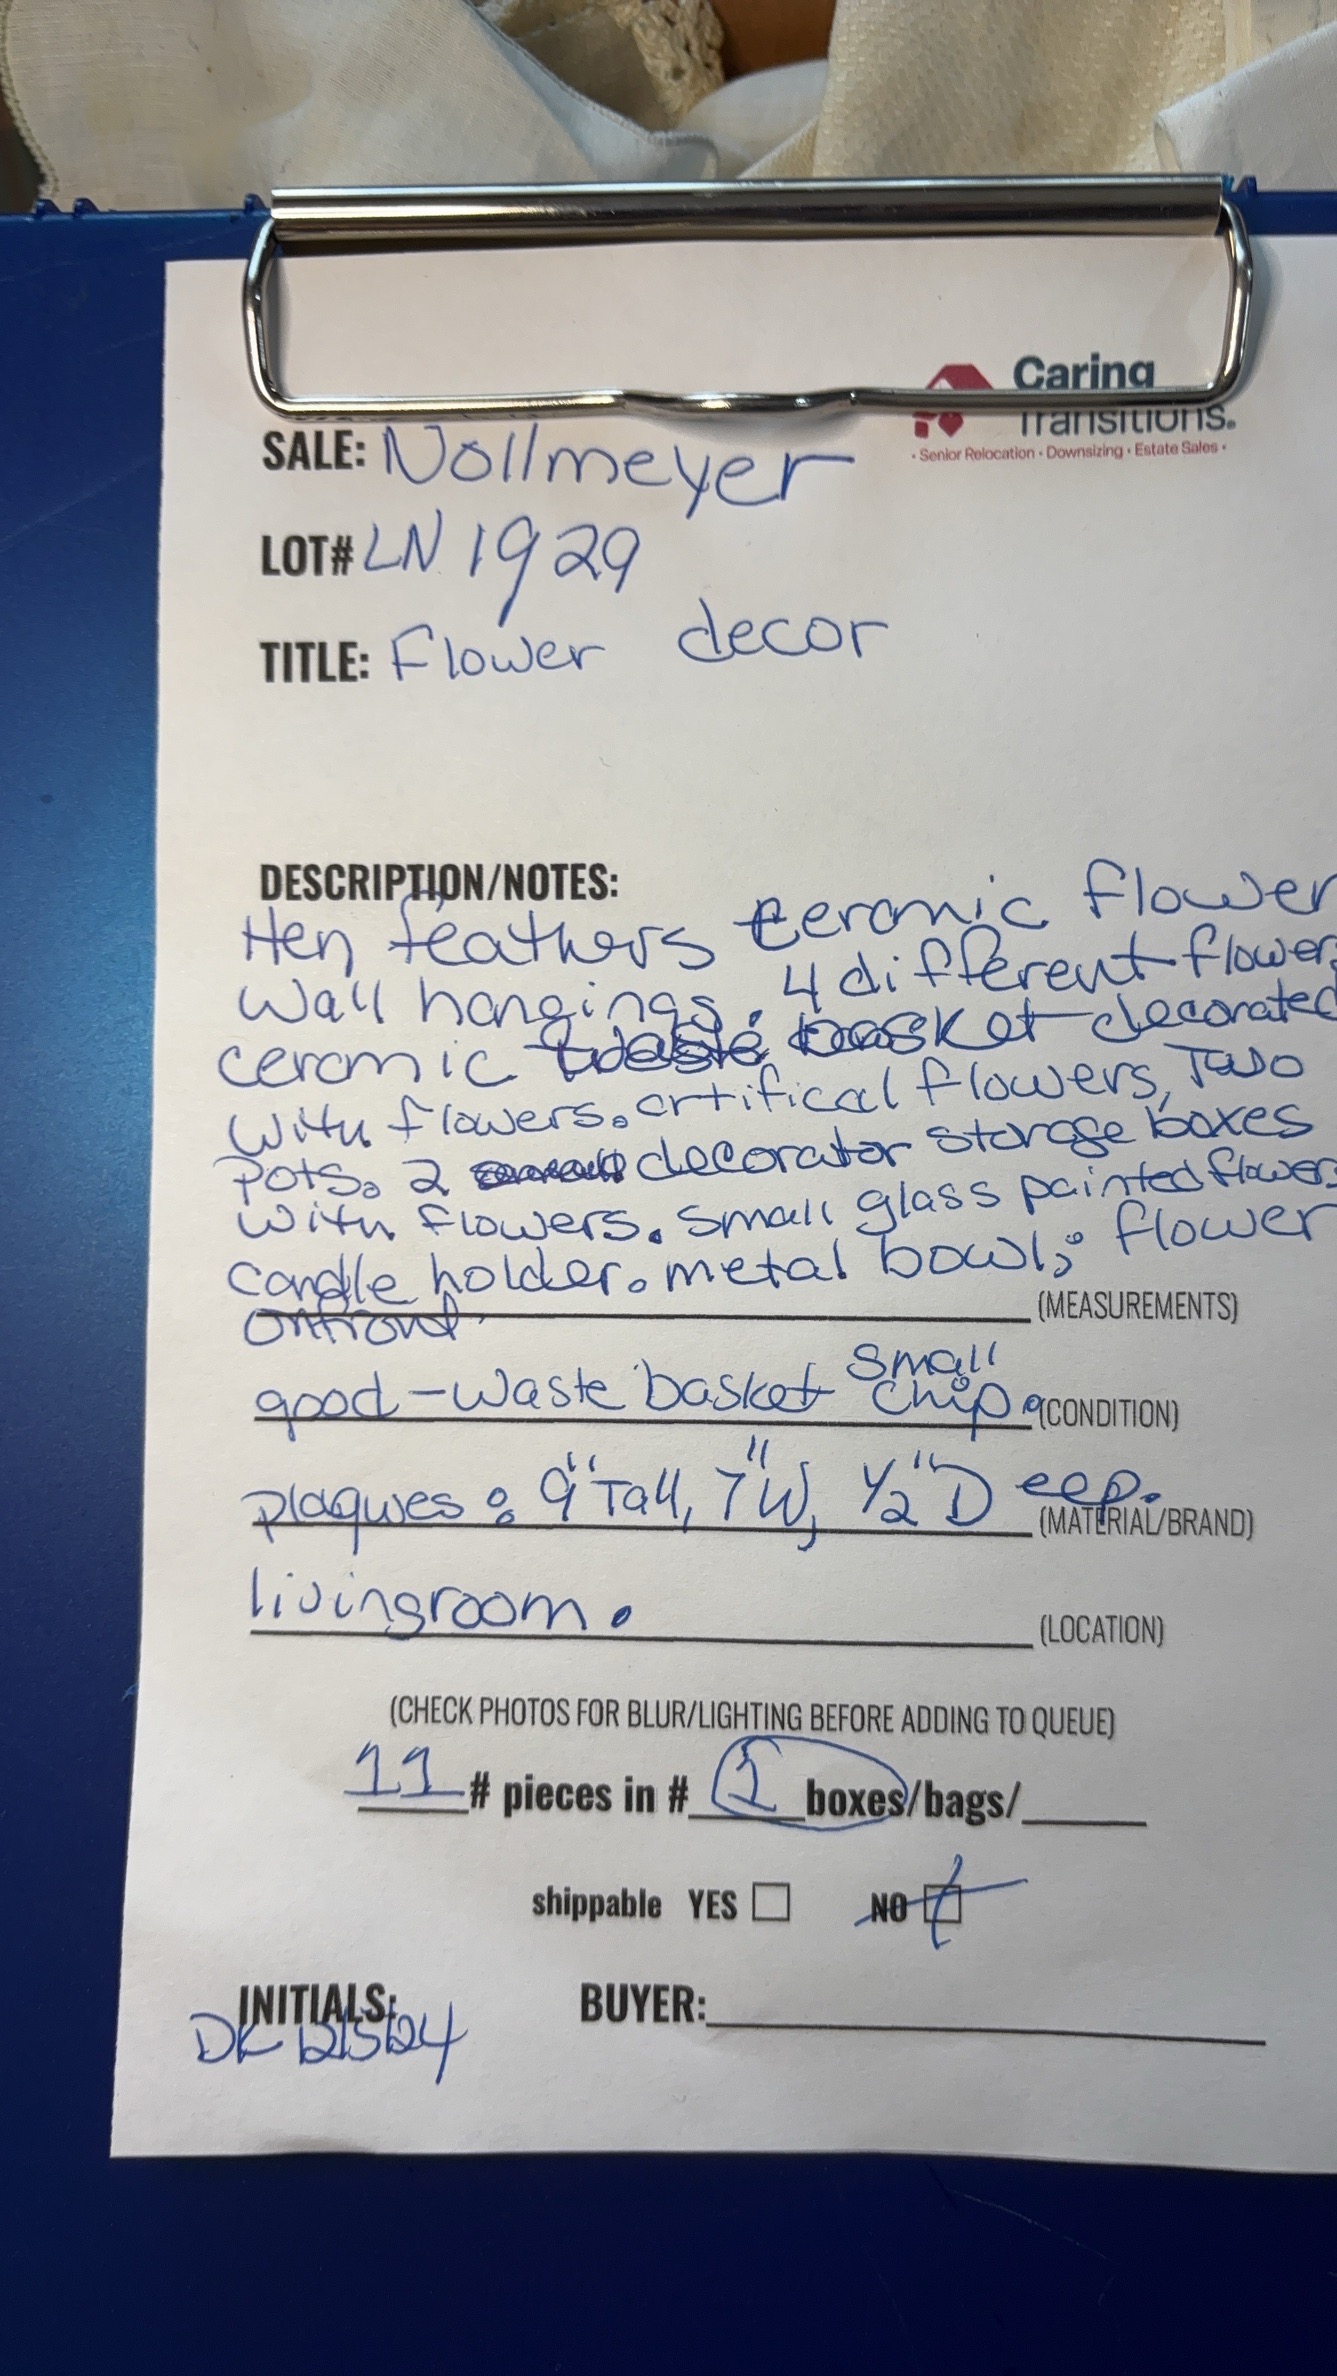 Caring
Transitions®
• Senior Relocation • Downsizing • Estate Sales •
SALE: Nollmeyer
LOT# LN 1929
TITLE: Flower decor
DESCRIPTION/NOTES:
Hen feathers ceramic flower
Wall hangings. 4 different flowers
ceramic waste basket decorated
with flowers. artifical flowers, Two
pots. 2 decorator storage boxes
with flowers. small glass painted flower
candle holder. metal bowl; flower
on front. (MEASUREMENTS)
good - waste basket small
chip. (CONDITION)
plaques: 9" Tall, 7" W, 1/2" Deep. (MATERIAL/BRAND)
livingroom. (LOCATION)
(CHECK PHOTOS FOR BLUR/LIGHTING BEFORE ADDING TO QUEUE)
11 # pieces in # 1 boxes/bags/
shippable YES NO
INITIALS: BUYER:
DK